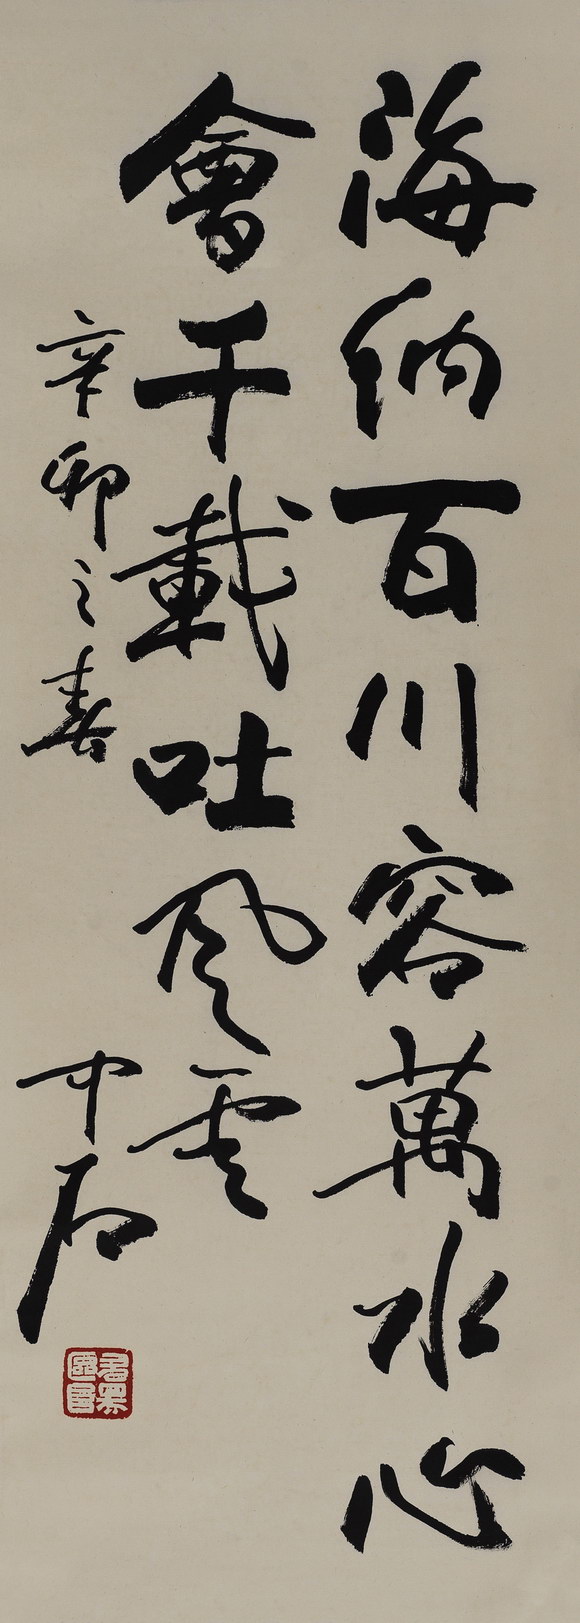 海纳百川容萬水心
會千載吐风雲
辛卯之春
中石